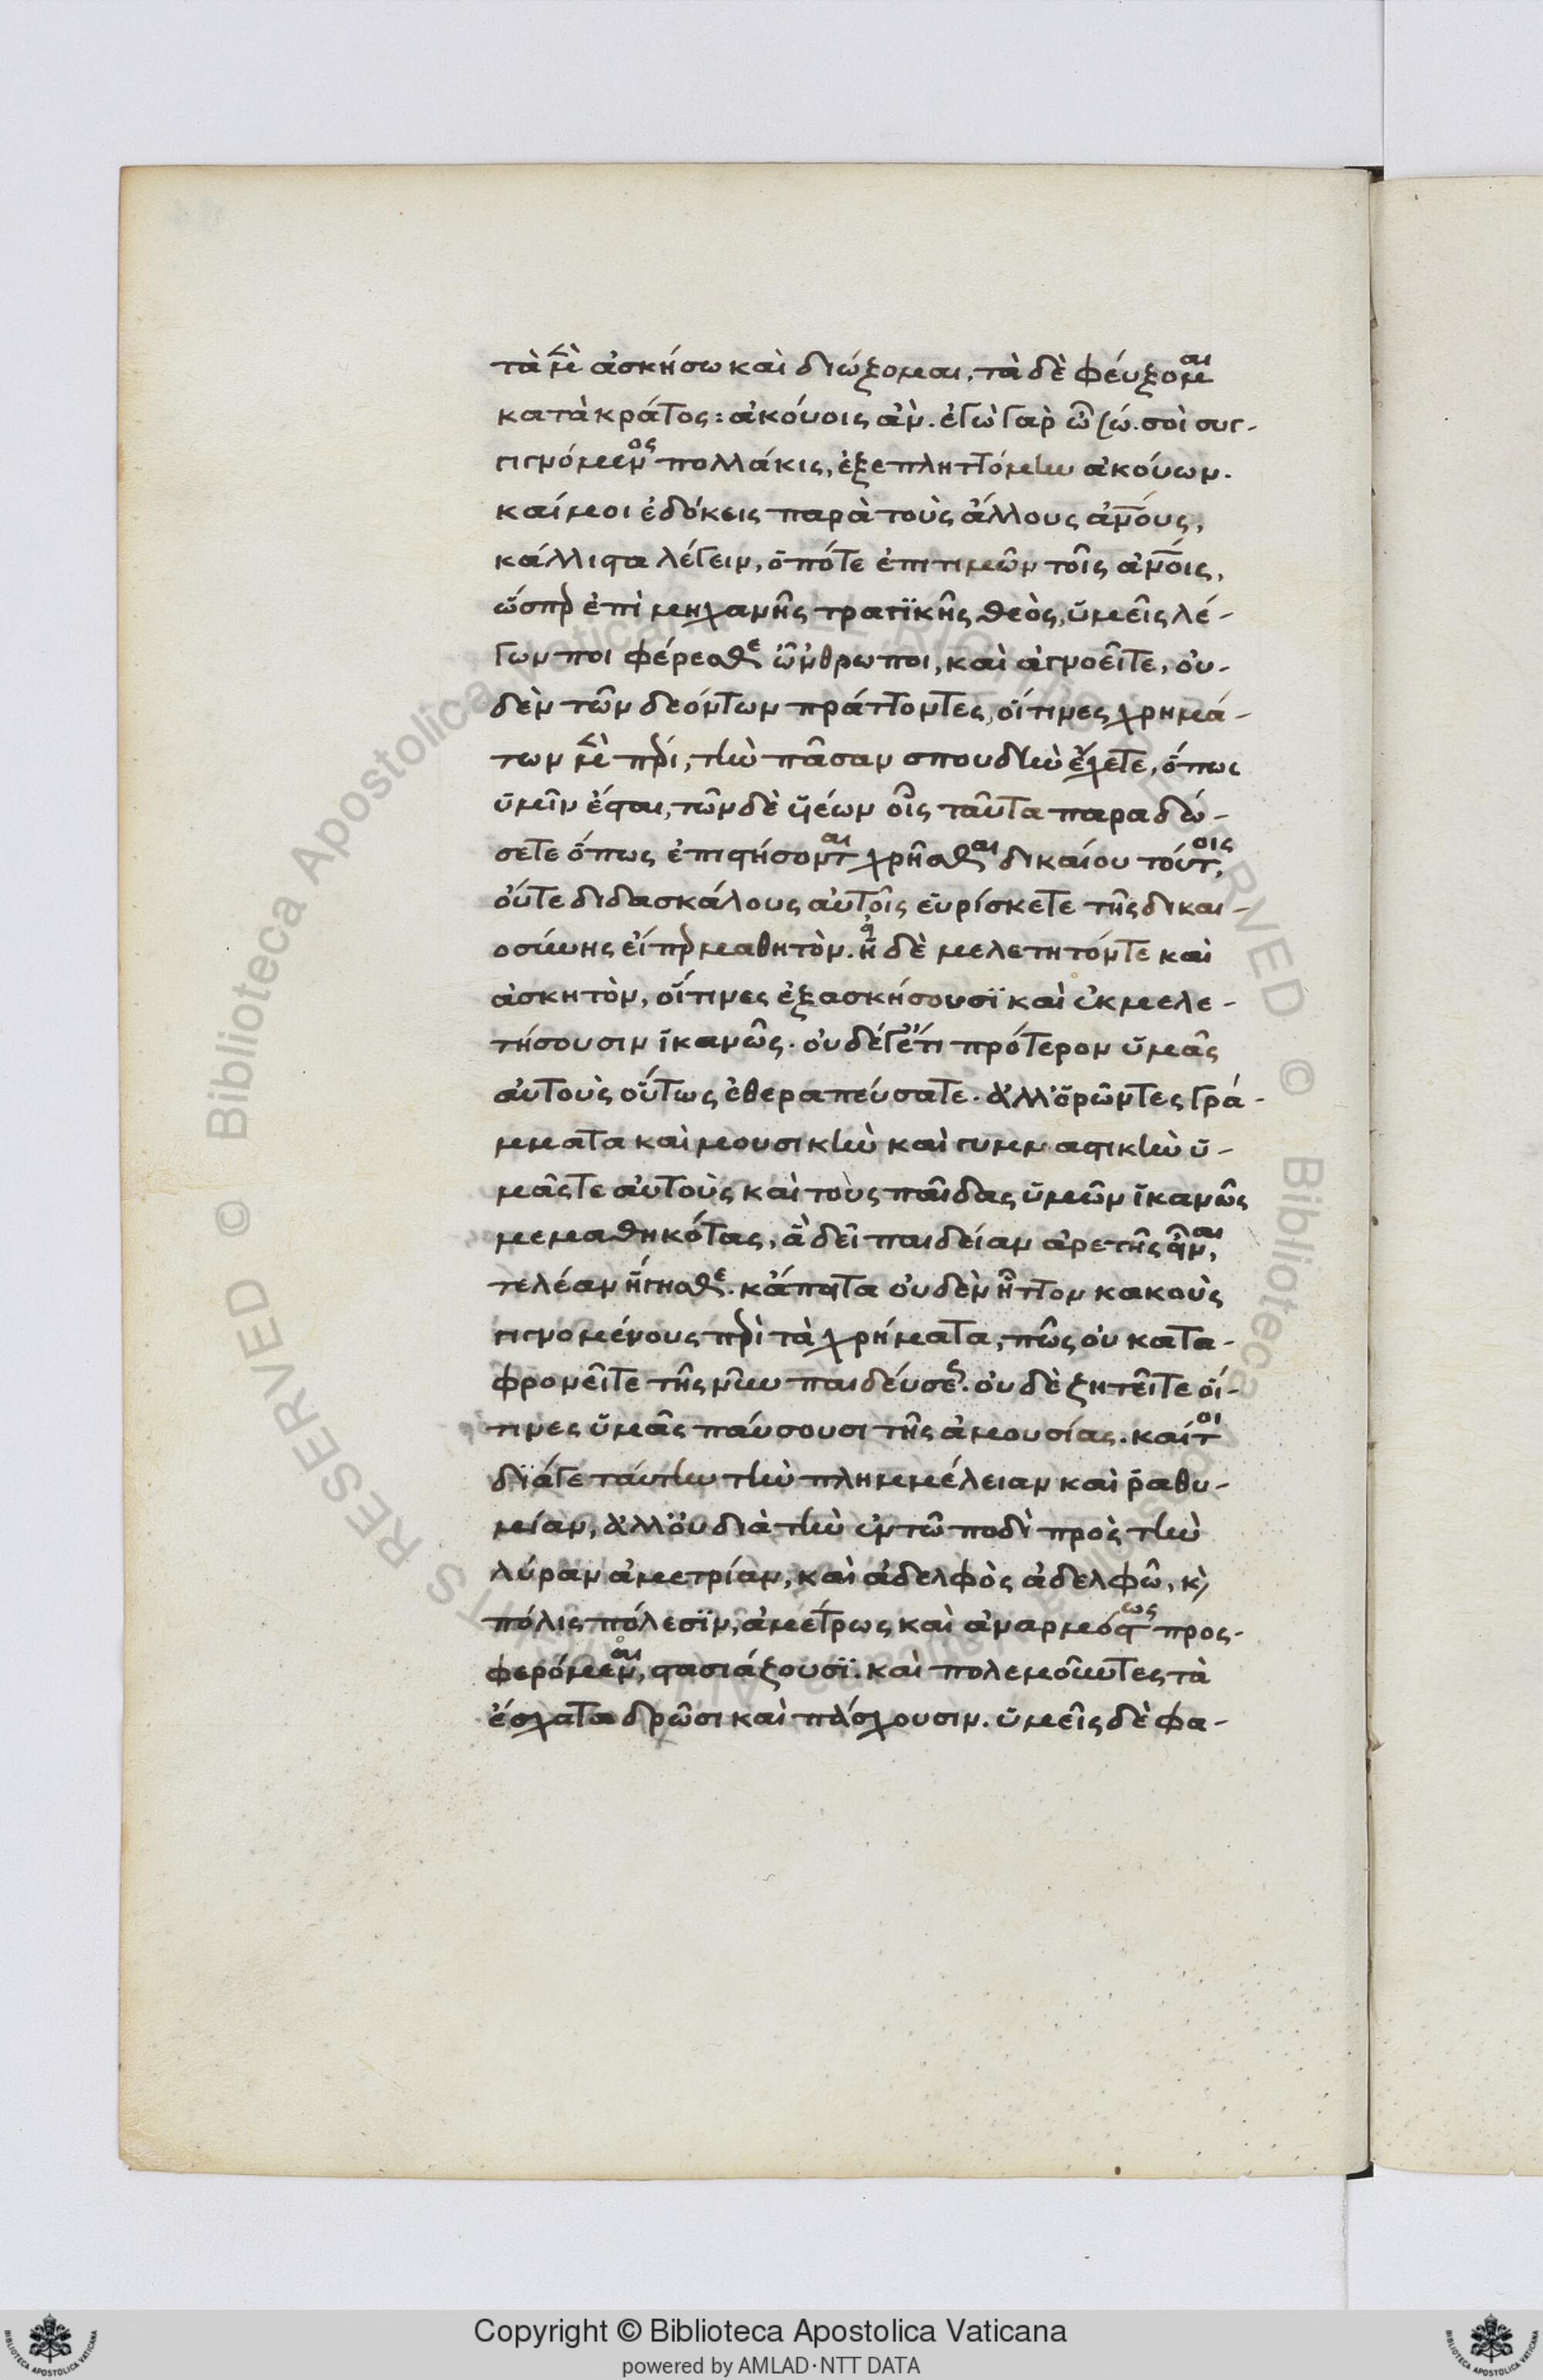 τὰ μὲν ἀσκήσω καὶ διώξομαι, τὰ δὲ φεύξομαι
κατὰ κράτος: ἀκούοις ἄν. ἐγὼ γὰρ ὦ σώ. σοὶ συγ-
γιγνόμενος πολλάκις, ἐξεπληττόμην ἀκούων.
καί μοι ἐδόκεις παρὰ τοὺς ἄλλους ἀν̅ους,
κάλλιστα λέγειν, ὁπότε ἐπιτιμῶν τοῖς ἀν̅οις,
ὥσπερ ἐπὶ μηχανῆς τραγϊκῆς θεὸς, ὑμεῖς λέ-
γων ποι φέρεσθε ὤνθρωποι, καὶ ἀγνοεῖτε, οὐ-
δὲν τῶν δεόντων πράττοντες, οἵτινες χρημά-
των μὲν πέρι, τὴν πᾶσαν σπουδὴν ἔχετε, ὅπως
ὑμῖν ἔσται, τῶν δὲ ὑέων οἷς ταῦτα παραδώ-
σετε ὅπως ἐπιστήσονται χρῆσθαι δικαίου τούτοις,
οὔτε διδασκάλους αὐτοῖς εὑρίσκετε τῆς δικαι-
οσύνης εἴπερ μαθητὸν. ἢ δὲ μελετητόν τε καὶ
ἀσκητὸν, οἵτινες ἐξασκήσουσϊ καὶ ἐκμελε-
τήσουσιν ἱκανῶς. οὐδέ γ' ἔτι πρότερον ὑμᾶς
αὐτοὺς οὕτως ἐθεραπεύσατε. ἀλλ' ὁρῶντες γρά-
μματα καὶ μουσικὴν καὶ γυμναστικὴν ὑ-
μᾶς τε αὐτοὺς καὶ τοὺς παῖδας ὑμῶν ἱκανῶς
μεμαθηκότας, ἃ δεῖ παιδείαν ἀρετῆς εἶναι,
τελέαν ἥγησθε. κἄπειτα οὐδὲν ἧττον κακοὺς
γιγνομένους περὶ τὰ χρήματα, πῶς οὐ κατα-
φρονεῖτε τῆς νῦν παιδεύσεως. οὐδὲ ζητεῖτε οἵ-
τινες ὑμᾶς παύσουσι τῆς ἀμουσίας. καίτοι
δϊά γε ταύτην τὴν πλημμέλειαν καὶ ῥαθυ-
μίαν, ἀλλ' οὐ διὰ τὴν ἐν τῶ ποδὶ πρὸς τὴν
λύραν ἀμετρίαν, καὶ ἀδελφὸς ἀδελφῶ, κ
πόλις πόλεσϊν, ἀμέτρως καὶ ἀναρμόστως προσ-
φερόμεναι, στασιάζουσϊ. καὶ πολεμοῦντες τὰ
ἔσχατα δρῶσι καὶ πάσχουσιν. ὑμεῖς δὲ φα-
Copyright © Biblioteca Apostolica Vaticana
powered by AMLAD·NTT DATA